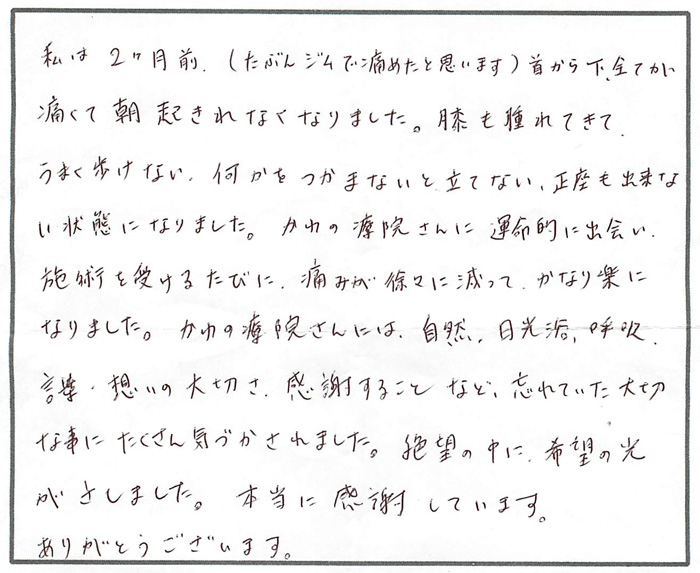 私は2ヶ月前、(たぶんジムで痛めたと思います)首から下、全てが
痛くて朝起きれなくなりました。膝も腫れてきて、
うまく歩けない、何かをつかまないと立てない、正座も出来な
い状態になりました。かわの療院さんに運命的に出会い、
施術を受けるたびに、痛みが徐々に減って、かなり楽に
なりました。かわの療院さんには、自然、日光浴、呼吸、
言葉・想いの大切さ、感謝することなど、忘れていた大切
な事にたくさん気づかされました。絶望の中に、希望の光
がさしました。本当に感謝しています。
ありがとうございます。